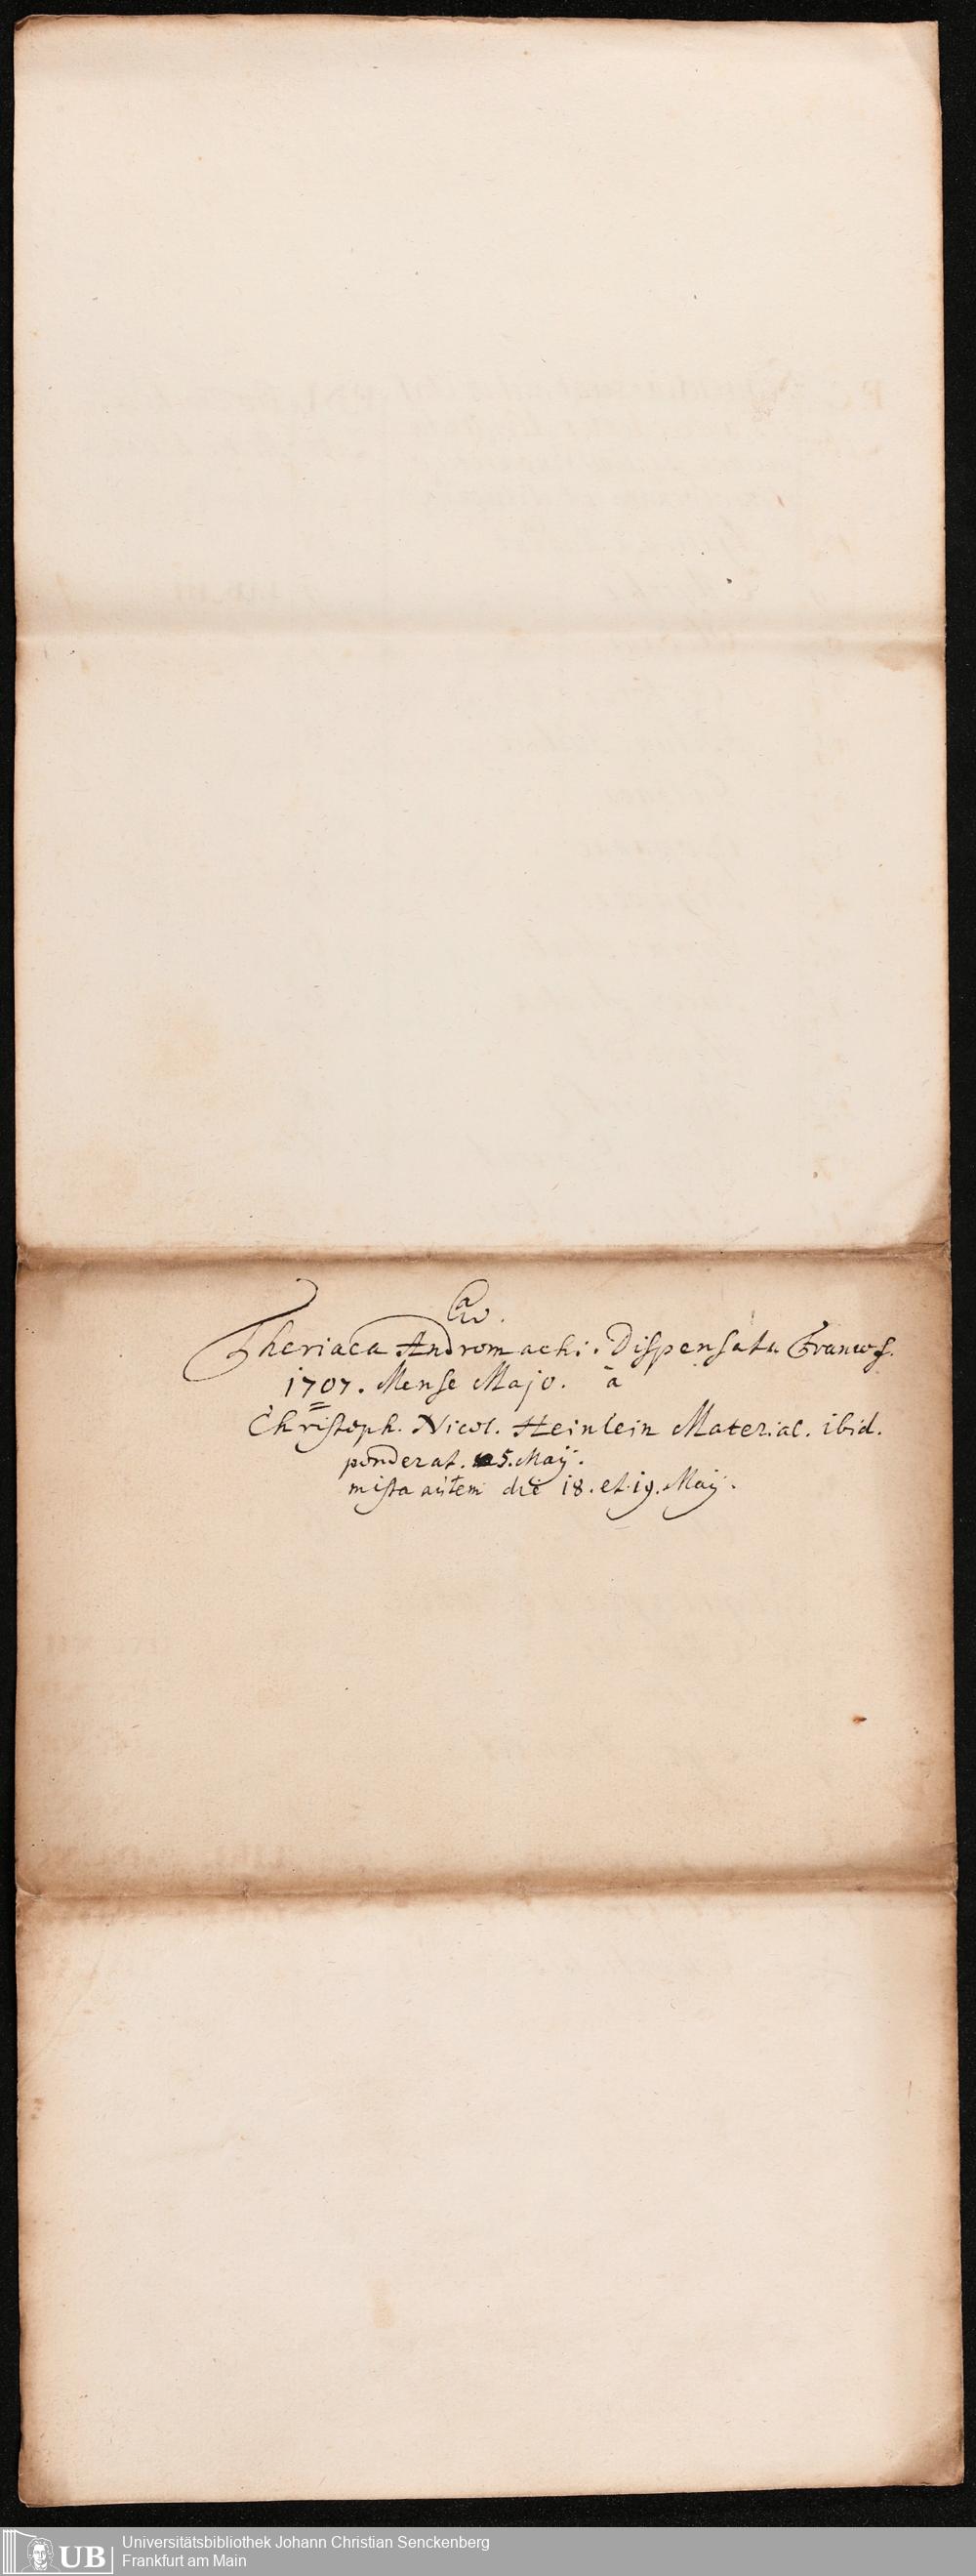 Theriaca Andromachi. Dispensata Francof.
1707. Mense Majo. à
Christoph. Nicol. Heinlein Material. ibid.
ponderat. 5. Maÿ.
mista aūtem die 18. et. 19. Maÿ.
UB Universitätsbibliothek Johann Christian Senckenberg
Frankfurt am Main